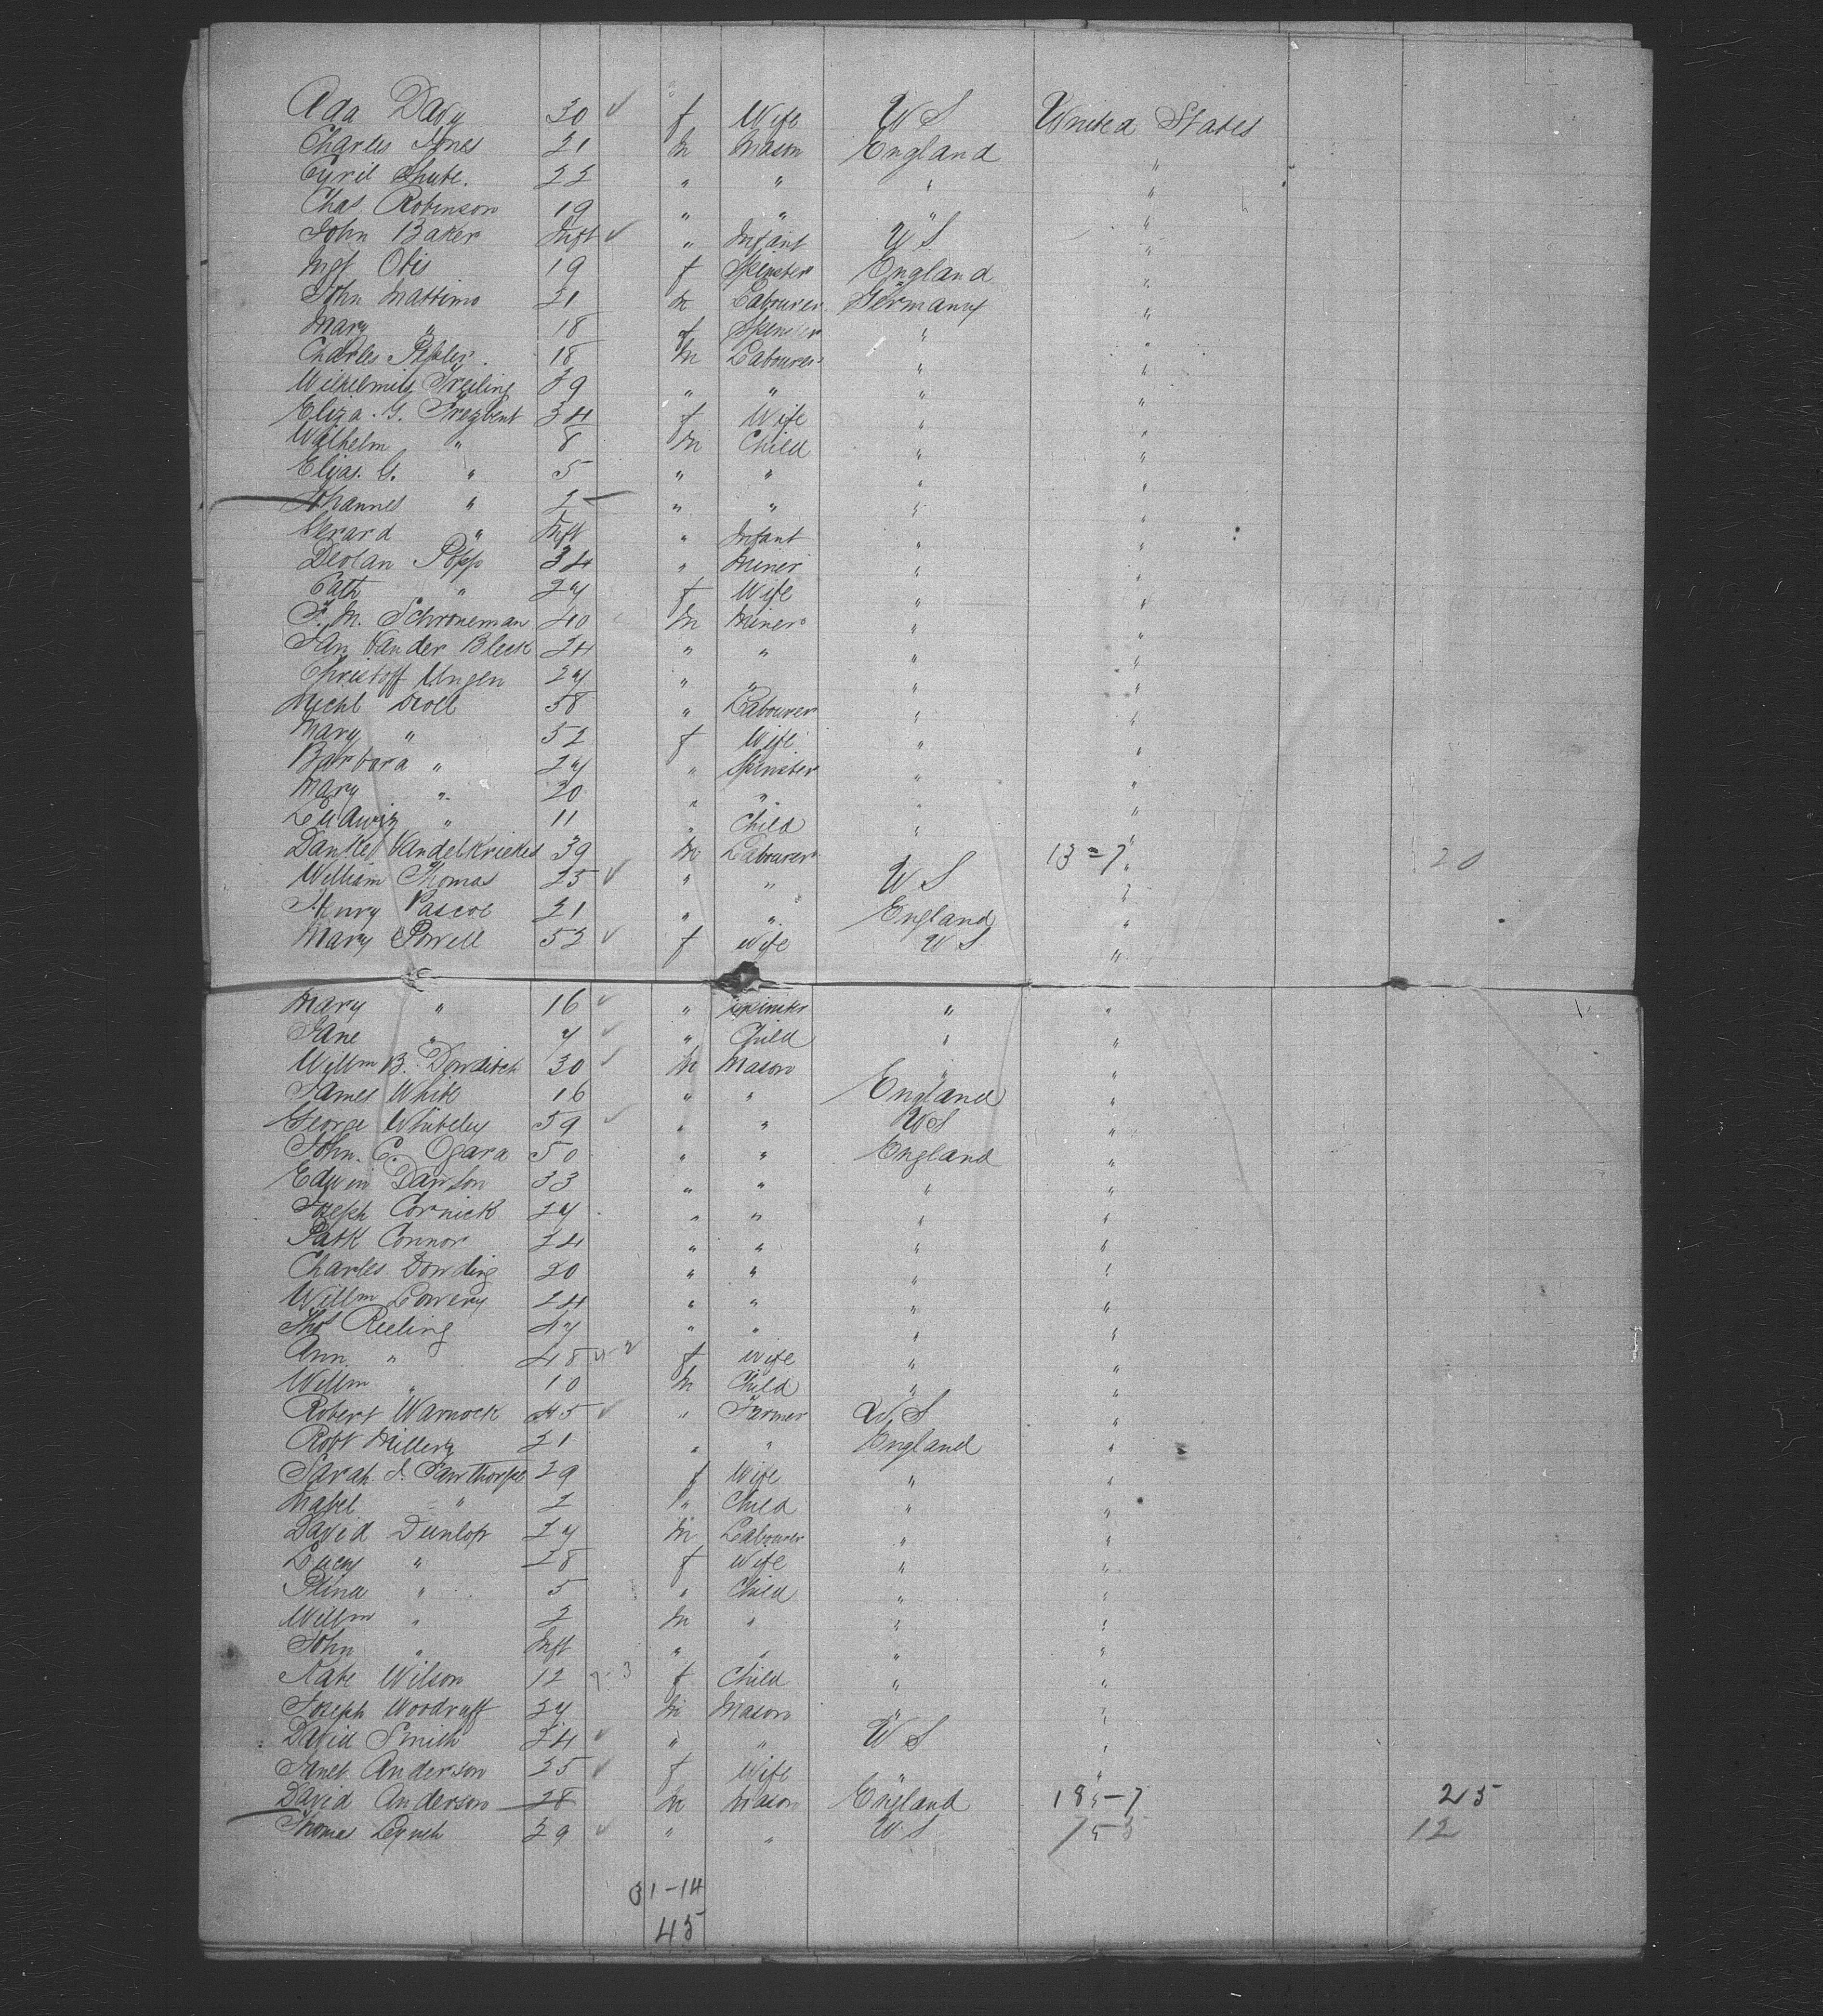 Ada Davy 30 ✓ f Wife U S United States
Charles Jones 21 m Mason England "
Cyril Shute. 22 " " " "
Chas. Robinson 19 " " " "
John Baker Inft ✓ " Infant U S "
Mgt Otis 19 f Spinster England "
John Mattimo 21 m Labourer Germany "
Mary " 18 f Spinster " "
Charles 18 m Labourer " "
39 " " " "
Eliza. G. 34 f Wife " "
Wilhelm " 8 m Child " "
Elias. G. " 5 " " " "
Johannes " 2 " " " "
Gerard " Inft " Infant " "
Popp 34 " Miner " "
Cath " 27 f Wife " "
F. M. Schroneman 40 m Miner " "
Jan Van der Bleek 24 " " " "
Christoff Ungen 27 " " " "
Michl 58 " Labourer " "
Mary " 52 f Wife " "
Barbara " 27 " Spinster " "
Mary " 20 " " " "
Ludwig " 11 " Child " "
39 m Labourer 13=7 " 20
William Thomas 25 ✓ " " U S "
Henry Pascoe 21 " " England "
Mary Powell 52 ✓ f Wife U S "
Mary " 16 ✓ " Spinster " "
Jane " 7 ✓ " Child " "
Willm B. Dowditch 30 ✓ m Mason " "
James White 16 " " England "
George Whiteley 59 ✓ " " U S "
John. C. Ogara 50 " " England "
Edwin Dawson 33 " " " "
Joseph Cornick 27 " " " "
Patk Connor 24 " " " "
Charles Dowding 20 " " " "
Willm Lowery 24 " " " "
Thos Reeling 47 " " " "
Ann " 48 f Wife " "
Willm " 10 m Child " "
Robert Warnock 45 ✓ " Farmer U S "
Robt 21 " " England "
Sarah J. Fawthorpe 29 f Wife " "
Mabel " 2 " Child " "
David Dunlop 27 m Labourer " "
Lucy " 28 f Wife " "
" 5 " Child " "
Willm " 2 m " " "
John " Inft " " " "
Kate Wilson 12 f Child " "
Joseph Woodruff 27 m Mason " "
David Smith 24 ✓ " " U S "
Janet Anderson 25 ✓ f Wife " "
David Anderson 28 m Mason England 18-7 25
Thomas Lynch 29 ✓ " " U S 12
31-14
45